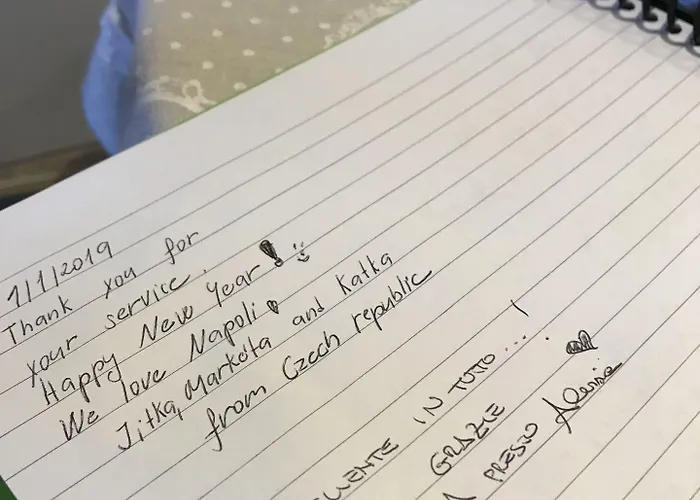 1/1/2019
Thank you for
your service.
Happy New Year! :)
We love Napoli ♥
Jitka, Markéta and Katka
from Czech republic
IN TUTO...!
GRAZIE
PRESTO